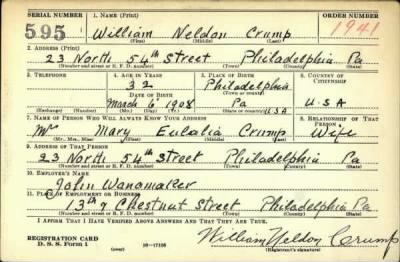 SERIAL NUMBER 1. NAME (Print) ORDER NUMBER
595 William Neldon Crump 1941
(First) (Middle) (Last)
2. ADDRESS (Print)
23 North 54th Street Philadelphia Pa
(Number and street or R. F. D. number) (Town) (County) (State)
3. TELEPHONE 4. AGE IN YEARS 5. PLACE OF BIRTH 6. COUNTRY OF CITIZENSHIP
32 Philadelphia
(Town or county)
DATE OF BIRTH
March 6 1908 Pa U.S.A
(Exchange) (Number) (Mo.) (Day) (Yr.) (State or country) USA
7. NAME OF PERSON WHO WILL ALWAYS KNOW YOUR ADDRESS 8. RELATIONSHIP OF THAT PERSON
Mrs Mary Eulalia Crump Wife
(Mr., Mrs., Miss) (First) (Middle) (Last)
9. ADDRESS OF THAT PERSON
23 North 54th Street Philadelphia Pa
(Number and street or R. F. D. number) (Town) (County) (State)
10. EMPLOYER'S NAME
John Wanamaker
11. PLACE OF EMPLOYMENT OR BUSINESS
13th & Chestnut Street Philadelphia Pa
(Number and street or R. F. D. number) (Town) (County) (State)
I AFFIRM THAT I HAVE VERIFIED ABOVE ANSWERS AND THAT THEY ARE TRUE.
REGISTRATION CARD
D. S. S. Form 1 (over) 16—17105 William Neldon Crump
(Registrant's signature)